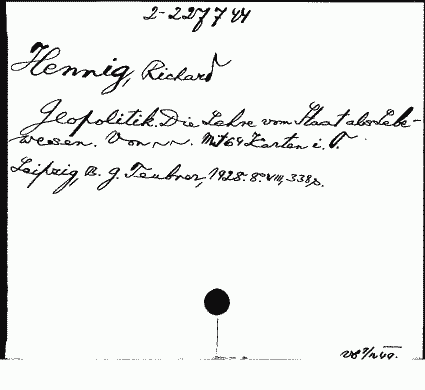 2-227744
Hennig, Richard
Geopolitik. Die Lehre vom Staat als Lebe-
wesen. Von ~~~. Mit 64 Karten i. T.
Leipzig, B. G. Teubner, 1928. 8°. VIII, 338 p.